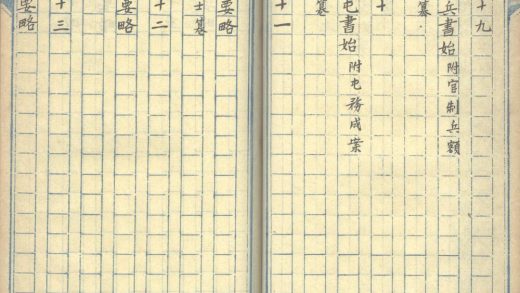 十九
兵書始 附官制兵額
纂
十
屯書始 附屯務成案
纂
十一
要略
士纂
十二
要略
十三
要略